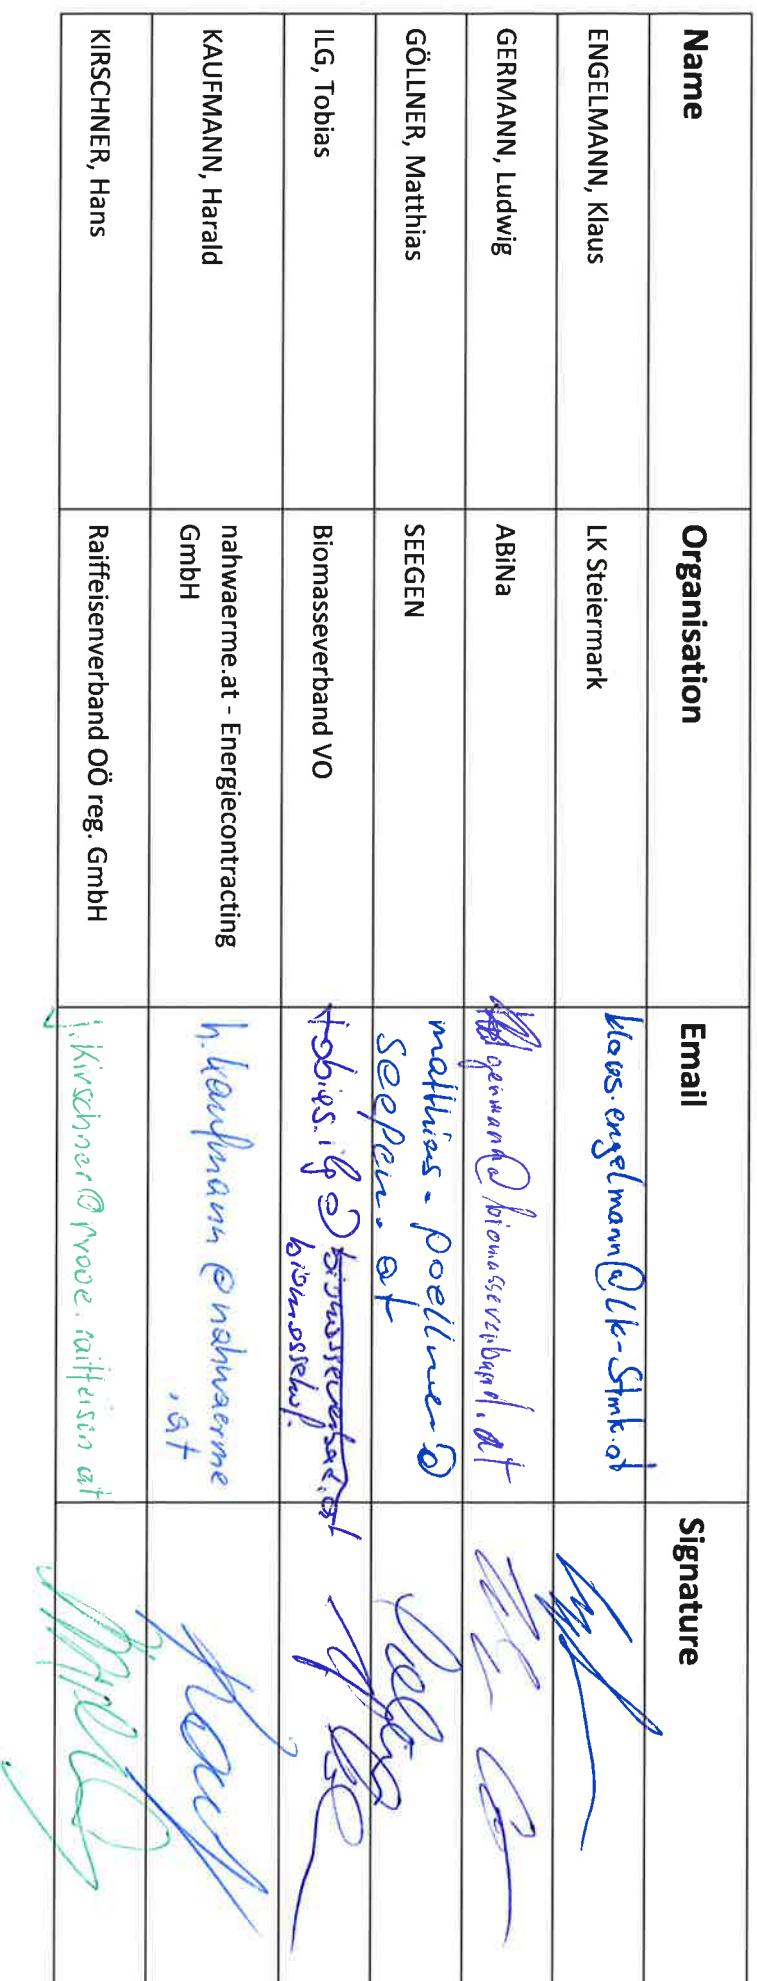 Name Organisation Email Signature
ENGELMANN, Klaus LK Steiermark klaus.engelmann@lk-stmk.at
GERMANN, Ludwig ABiNa germann@biomasseverband.at
GÖLLNER, Matthias SEEGEN matthias.poellner@
seegen.at
ILG, Tobias Biomasseverband VO tobias.ilg@
KAUFMANN, Harald nahwaerme.at - Energiecontracting h.kaufmann@nahwaerme
GmbH .at
KIRSCHNER, Hans Raiffeisenverband OÖ reg. GmbH